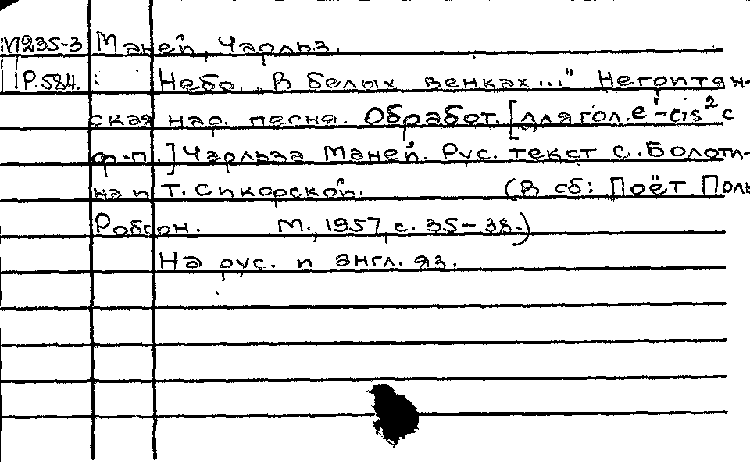 М235-3 Маней, Чарльз.
Р.584. Небо „В белых венках..." Негритян-
ская нар. песня. Обработ. [для гол. e¹-cis² с
ф-п.] Чарльза Маней. Рус. текст С. Болоти-
на и Т. Сикорской. (В сб: Поёт Поль
Робсон. М., 1957, с. 35-38.)
На рус. и англ. яз.